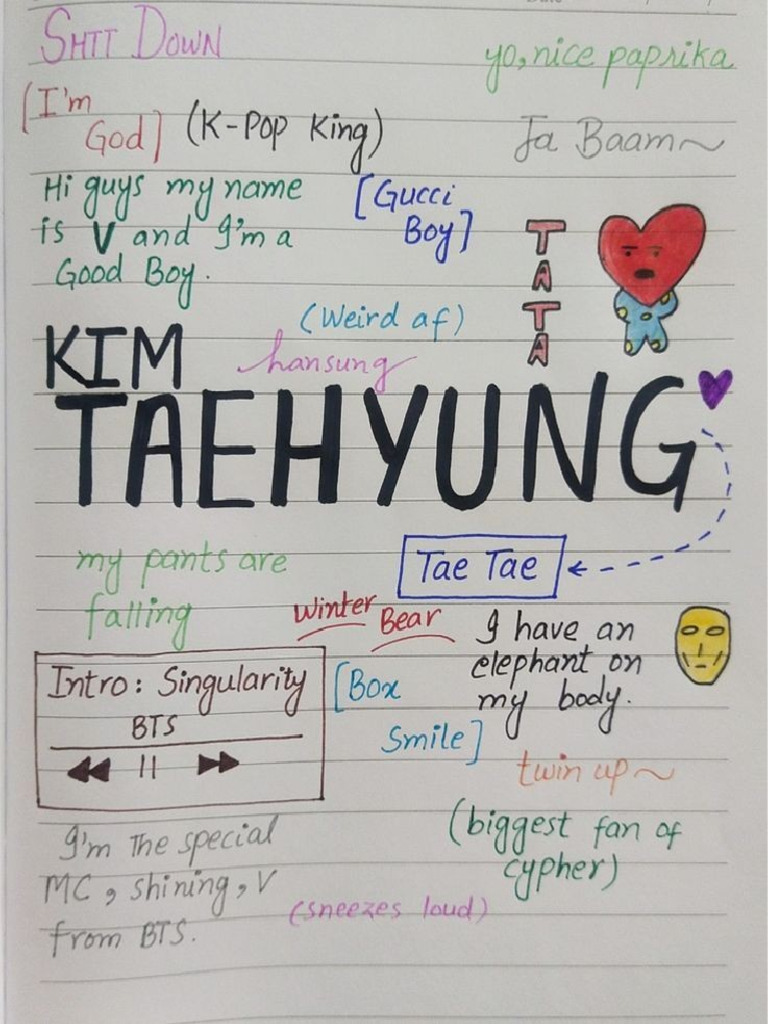 SHTT DOWN
yo, nice paprika
[I'm
God]
(K-POP King)
Ja Baam~
Hi guys my name
is V and I'm a
Good Boy.
[Gucci
Boy]
TATA
(Weird af)
hansung
KIM
TAEHYUNG
my pants are
falling
Tae Tae
Winter
Bear
I have an
elephant on
my body.
Intro: Singularity
BTS
[Box
Smile]
twin up~
(biggest fan of
cypher)
I'm The special
MC, shining, V
from BTS.
(sneezes loud)